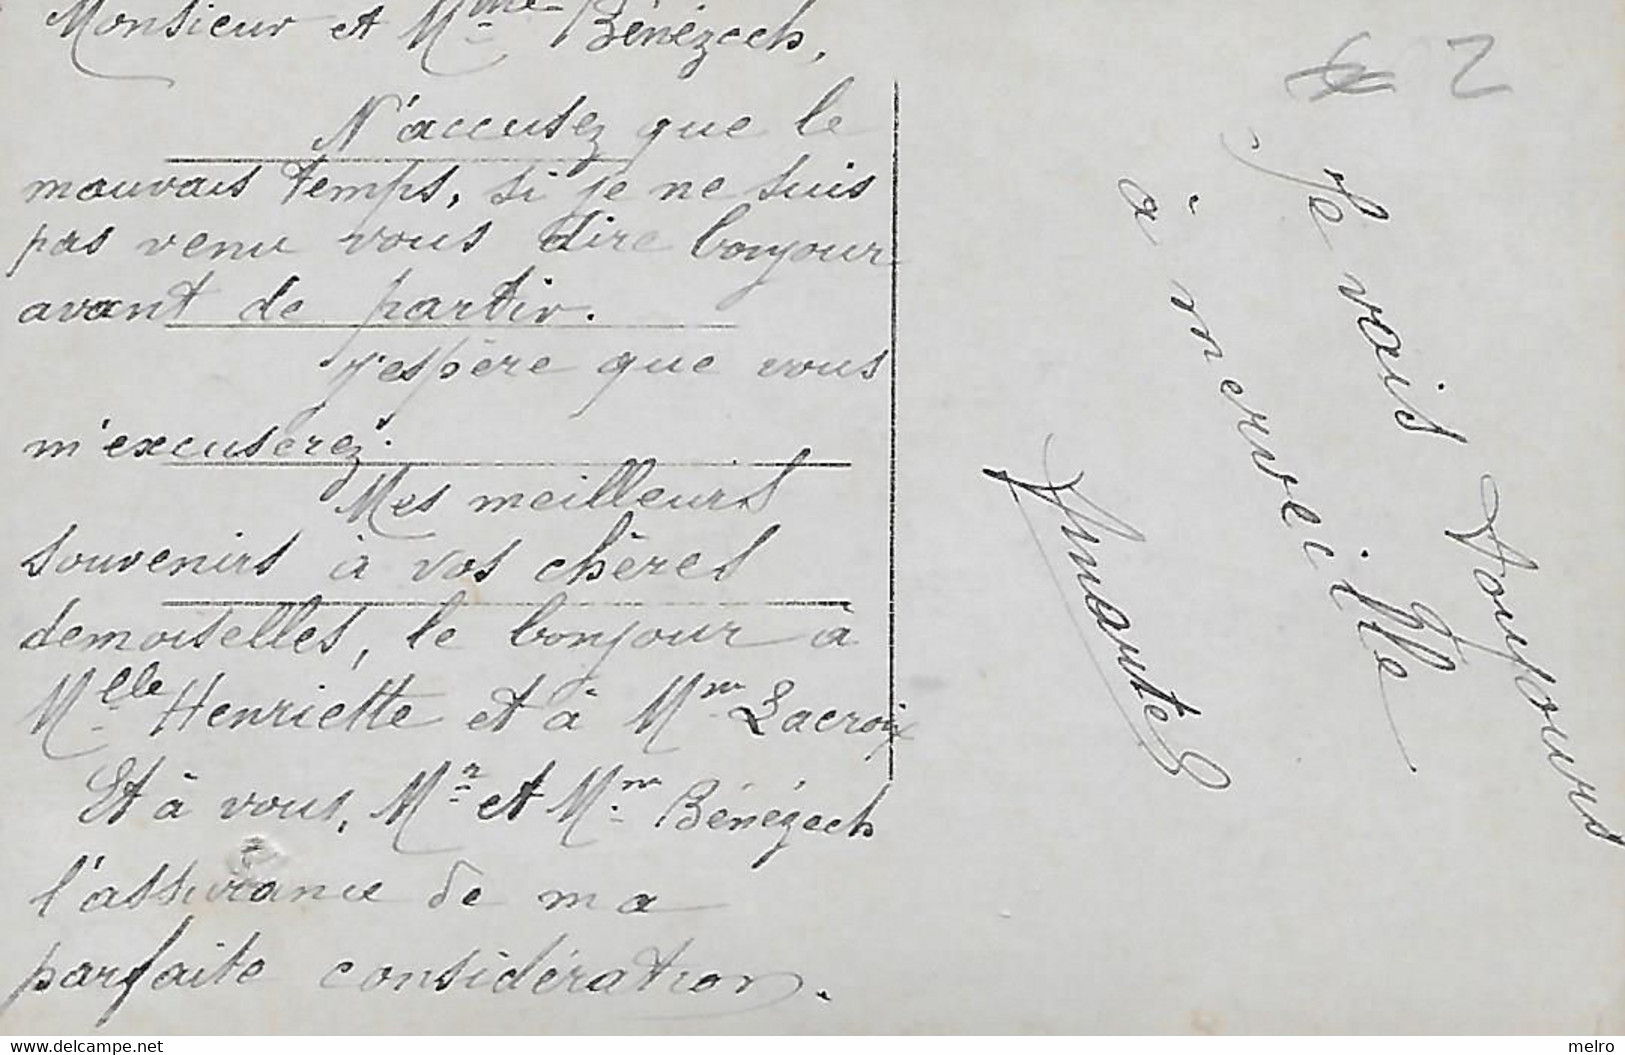 Monsieur et Mme Bénézech,
N'accusez que le
mauvais temps, si je ne suis
pas venu vous dire bonjour
avant de partir.
j'espère que vous
m'excuserez.
Mes meilleurs
souvenirs à vos chères
demoiselles, le bonjour à
Mlle Henriette et à Mme Lacroix
Et à vous, Mr et Mme Bénézech
l'assurance de ma
parfaite considération.
2
Je vais toujours
à merveille
www.delcampe.net
melro